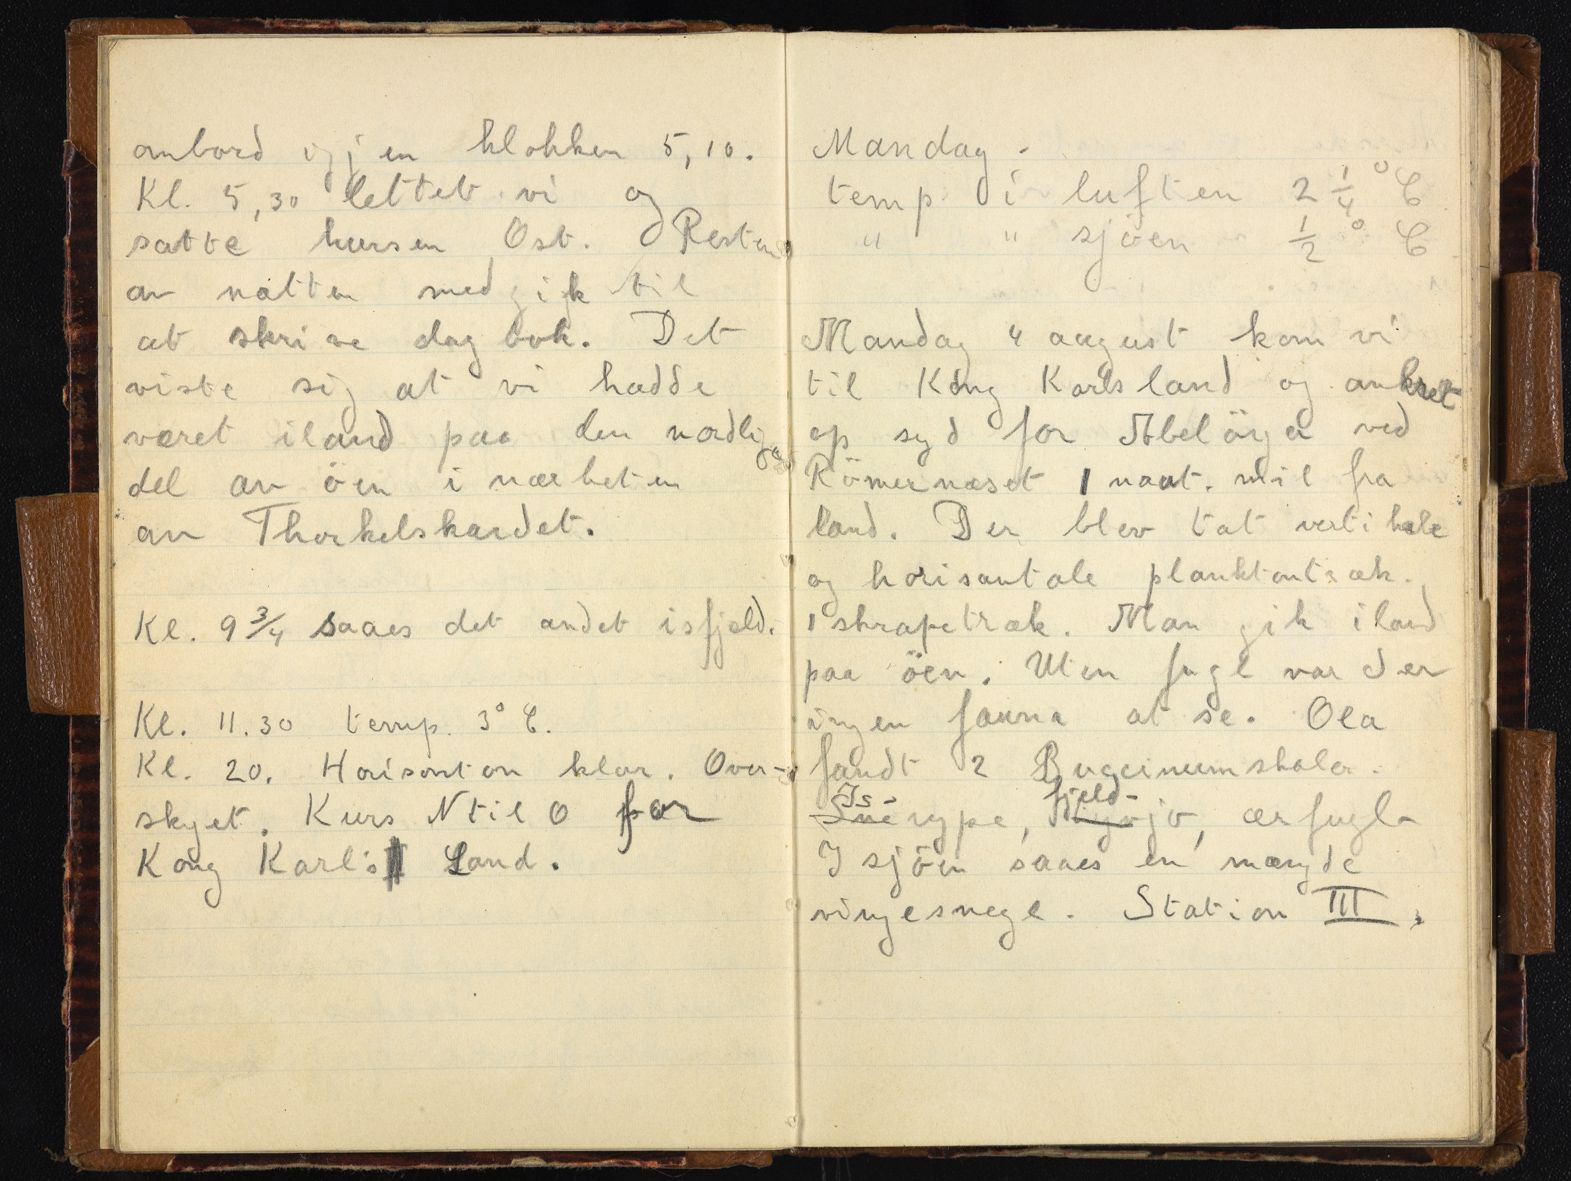 ombord igjen klokken 5,10.
Kl. 5,30 lettet vi og
satte kursen Øst. Resten
av natten medgik til
at skrive dagbok. Det
viste sig at vi hadde
været iland paa den nordlige
del av öen i nærheten
av Thorkelskardet.
Kl. 9 3/4 saaes det andet isfjeld.
Kl. 11.30 temp. 3° C.
Kl. 20. Horisonten klar. Over-
skyet. Kurs N til O for
Kong Karls Land.
Mandag.
temp. i luften 2 1/4° C
" " sjöen 1/2° C
Mandag 4 august kom vi
til Kong Karls land og ankret
op syd for Abelöya ved
Römernæset 1 naut. mil fra
land. Der blev tat vertikale
og horisontale planktontræk.
1 skrapetræk. Man gik iland
paa öen. Uten fugl var der
ingen fauna at se. Ola
fandt 2 Buccinumskaler.
Is- fjeld-
Sne rype, jo, ærfugl
I sjöen saaes en mængde
vingesnegl. Station III.